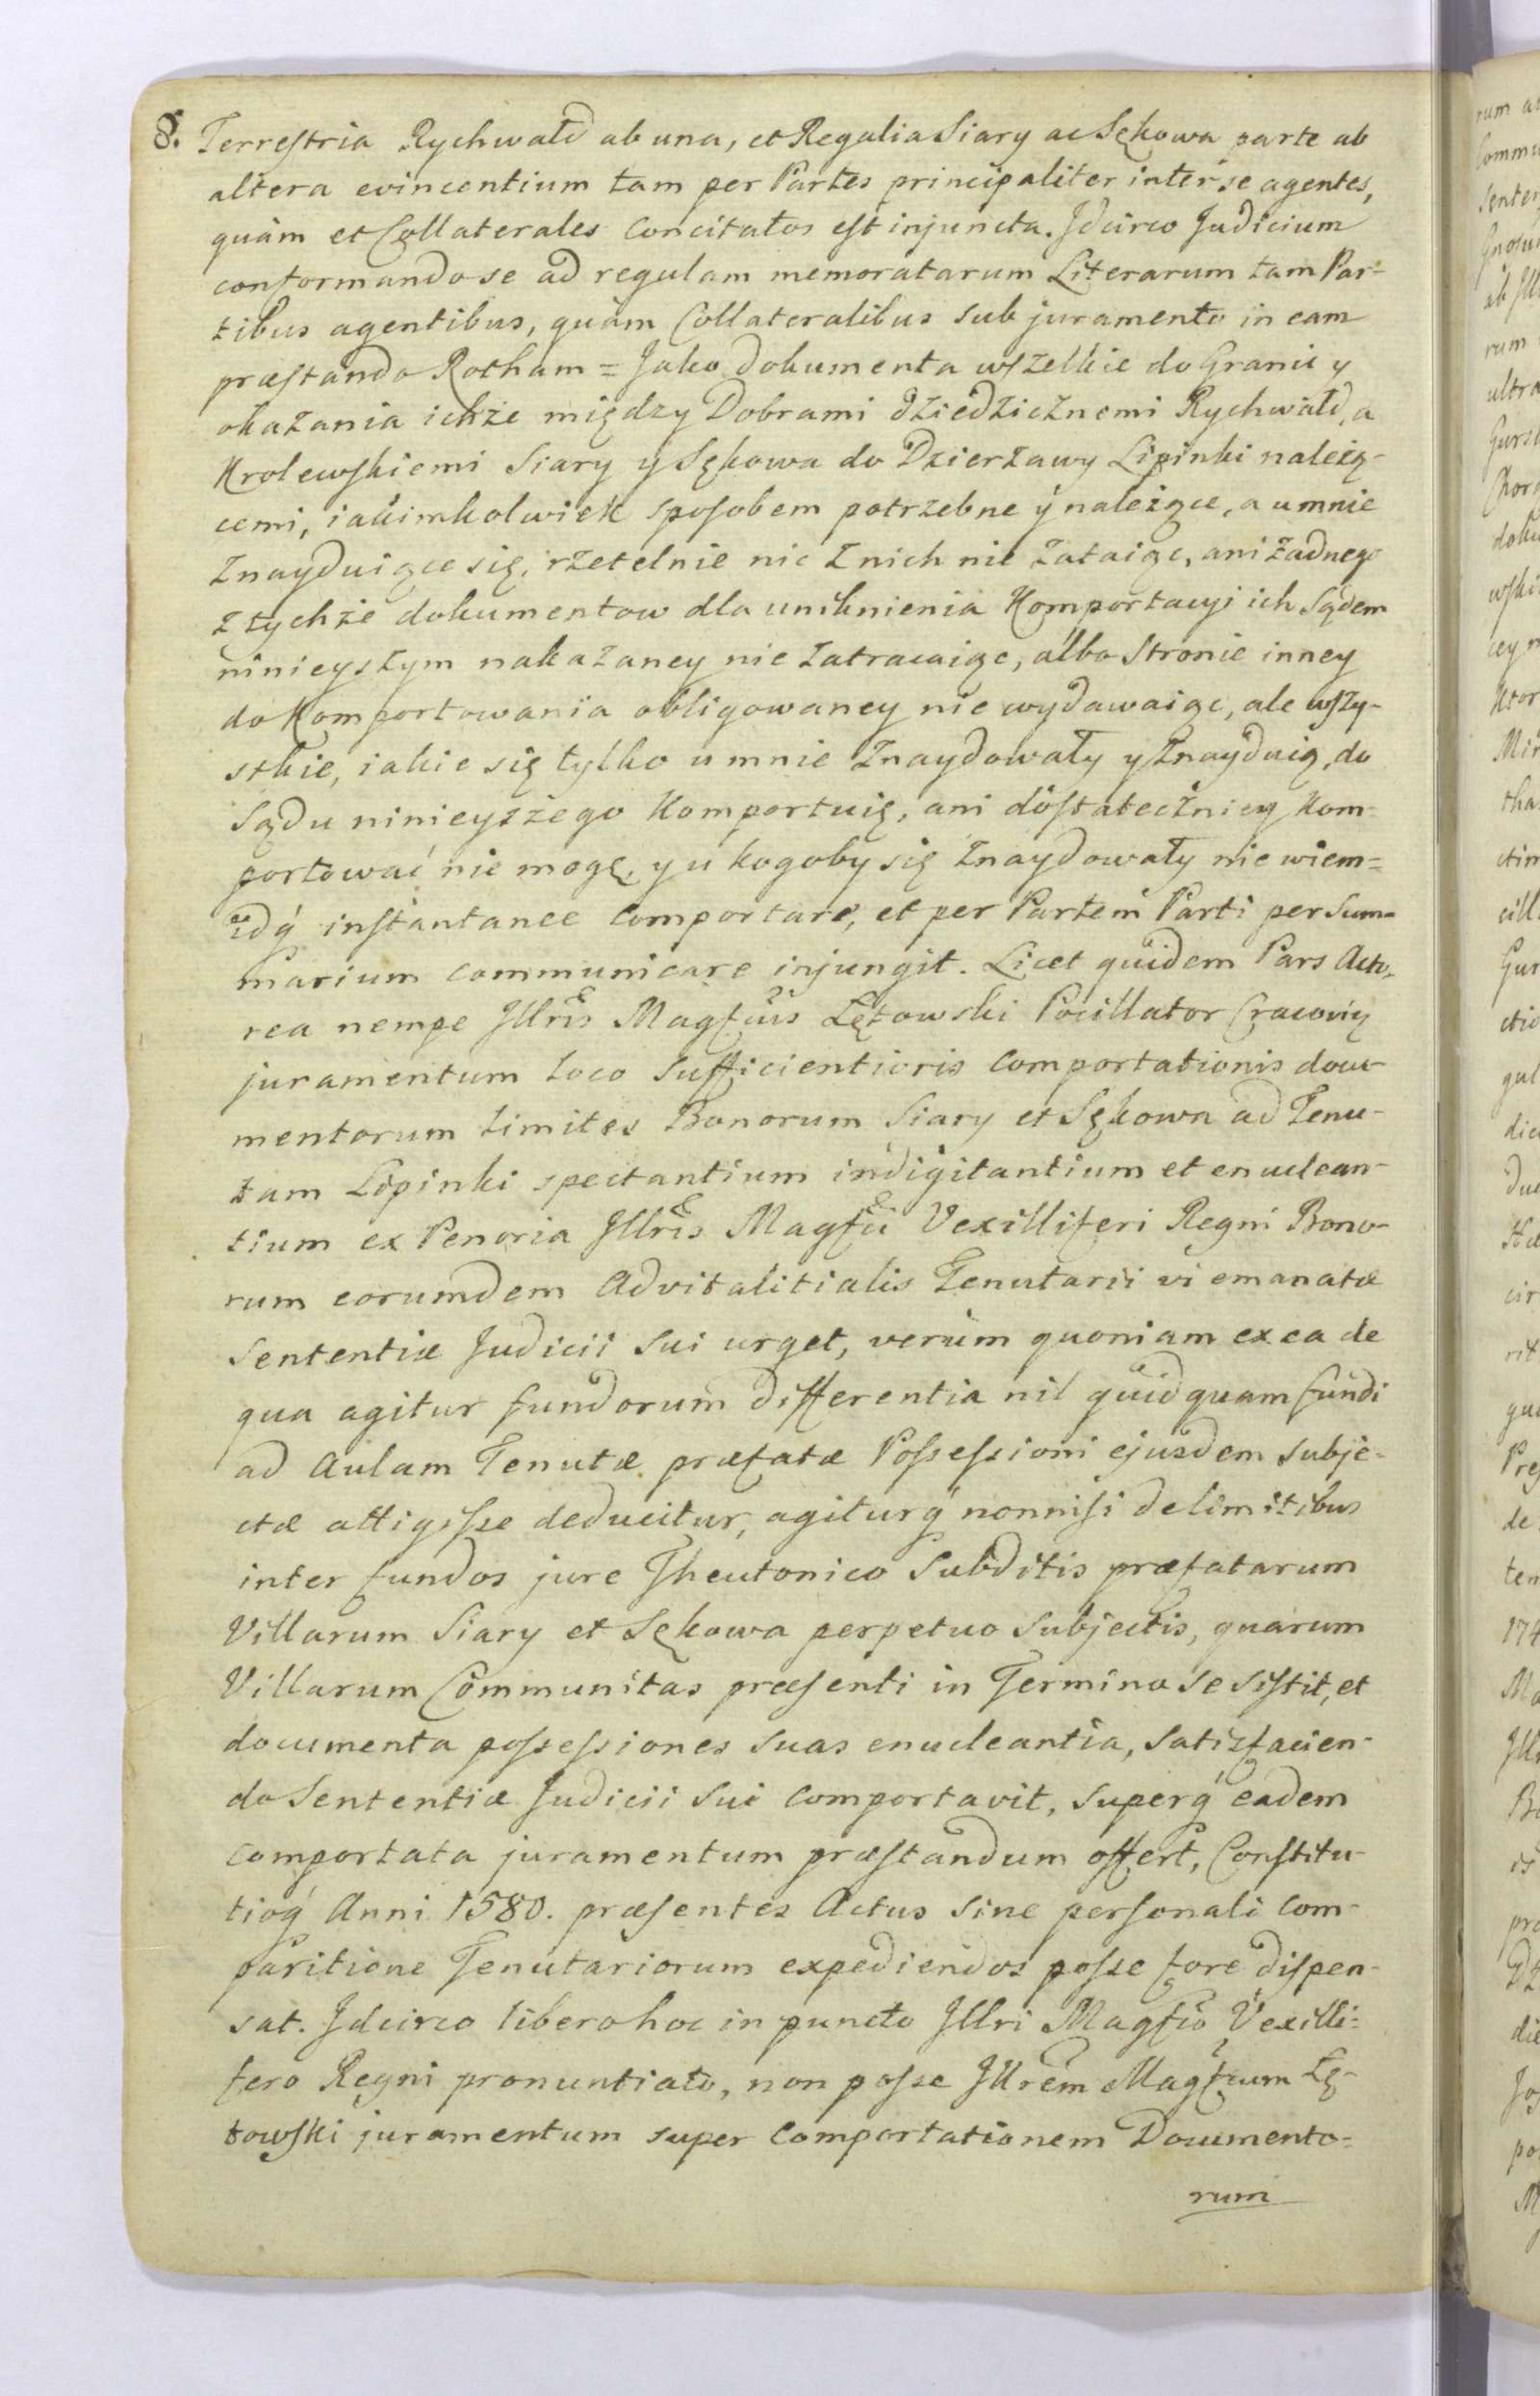 8. Terrestria Rychwałd ab una, et Regalia Siary ac Sękowa parte ab
altera evincentium tam per Partes principaliter inter se agentes,
quàm et Collaterales Concitatos est injuncta. Idcirco Judicium
conformando se ad regulam memoratarum Literarum tam Par-
tibus agentibus, quàm Collateralibus sub juramento in eam
præstando Rotham = Jako dokumenta wszelkie do Granic y
okazania ichże między Dobrami dziedzicznemi Rychwałd, a
Krolewskiemi Siary y Sękowa do Dzierzawy Lipinki należą-
cemi, iakimkolwiek sposobem potrzebne y należące, a u mnie
znayduiące się, rzetelnie nic z nich nie zataiąc, ani żadnego
z tychże dokumentow dla uniknienia Komportacyi ich Sądem
ninieyszym nakazaney nie zatracaiąc, albo Stronie inney
do Komportowania obligowaney nie wydawaiąc, ale wszy-
stkie, iakie się tylko u mnie znaydowały y znayduią, do
Sądu ninieyszego Komportuię, ani dostateczniey kom-
portować nie mogę, y u kogoby się znaydowały nie wiem =
idq́ instantanee comportare, et per Partem Parti per Sum-
marium communicare injungit. Licet quidem Pars Acto-
rea nempe Illris Magfcus Łętowski Pocillator Cracovię
juramentum loco Sufficientioris Comportationis docu-
mentorum limites Bonorum Siary et Sękowa ad Tenu-
tam Lipinki spectantium indigitantium et enuclean-
tium ex Penoria Illris Magfci Vexilliferi Regni Bono-
rum eorumdem Advitalitialis Tenutarii vi emanatæ
Sententiæ Judicii Sui urget, verùm quoniam ex ea de
qua agitur fundorum differentia nil quidquam fundi
ad Aulam Tenutæ præfatæ Possessioni ejusdem subje-
ctæ attigisse deducitur, agiturq́ nonnisi de limitibus
inter fundos jure Theutonico Subditis præfatarum
Villarum Siary et Sękowa perpetuo Subjectis, quarum
Villarum Communitas præsenti in Termino se sistit, et
documenta possessiones suas enucleantia, Satisfacien-
do Sententiæ Judicii Sui Comportavit, Superq́ eadem
Comportata juramentum præstandum offert, Constitu-
tioq́ Anni 1580. præsentes Actus Sine personali Com-
paritione Tenutariorum expediendos posse fore dispen-
sat. Idcirco libero hoc in puncto Illri Magfco Vexilli-
fero Regni pronuntiato, non posse Illrem Magfcum Łę-
towski juramentum super Comportationem Documento-
rum